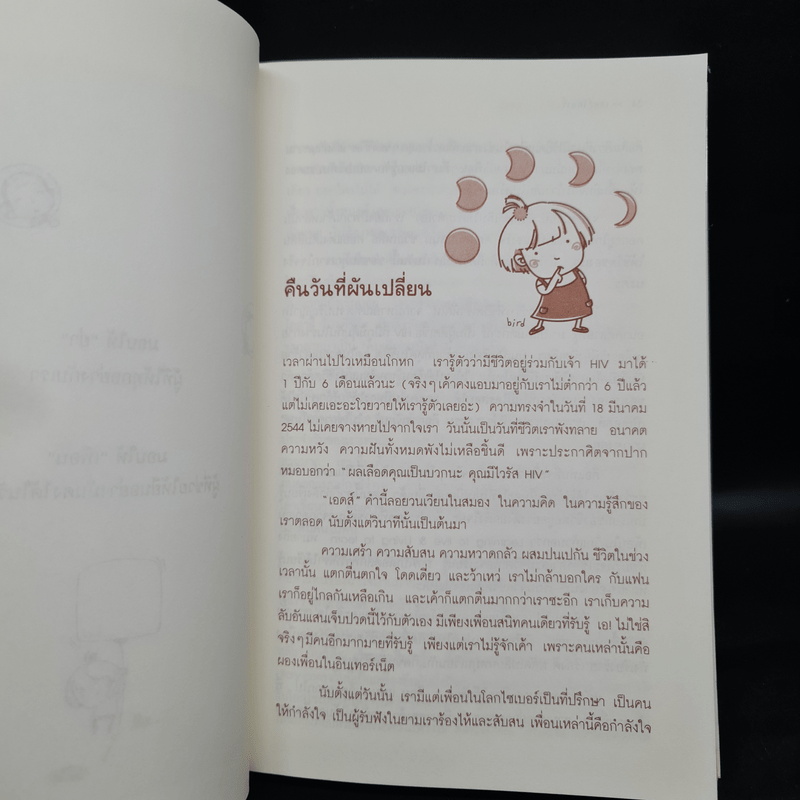 bird
คืนวันที่ผันเปลี่ยน
เวลาผ่านไปไวเหมือนโกหก เรารู้ตัวว่ามีชีวิตอยู่ร่วมกับเจ้า HIV มาได้
1 ปีกับ 6 เดือนแล้วนะ (จริงๆ เค้าคงแอบมาอยู่กับเราไม่ต่ำกว่า 6 ปีแล้ว
แต่ไม่เคยเอะอะโวยวายให้เรารู้ตัวเลยอ่ะ) ความทรงจำในวันที่ 18 มีนาคม
2544 ไม่เคยจางหายไปจากใจเรา วันนั้นเป็นวันที่ชีวิตเราพังทลาย อนาคต
ความหวัง ความฝันทั้งหมดพังไม่เหลือชิ้นดี เพราะประกาศิตจากปาก
หมอบอกว่า "ผลเลือดคุณเป็นบวกนะ คุณมีไวรัส HIV"
"เอดส์" คำนี้ลอยวนเวียนในสมอง ในความคิด ในความรู้สึกของ
เราตลอด นับตั้งแต่วินาทีนั้นเป็นต้นมา
ความเศร้า ความสับสน ความหวาดกลัว ผสมปนเปกัน ชีวิตในช่วง
เวลานั้น แตกตื่นตกใจ โดดเดี่ยว และว้าเหว่ เราไม่กล้าบอกใคร กับแฟน
เราก็อยู่ไกลกันเหลือเกิน และเค้าก็แตกตื่นมากกว่าเราซะอีก เราเก็บความ
ลับอันแสนเจ็บปวดนี้ไว้กับตัวเอง มีเพียงเพื่อนสนิทคนเดียวที่รับรู้ เอ! ไม่ใช่สิ
จริงๆ มีคนอีกมากมายที่รับรู้ เพียงแต่เราไม่รู้จักเค้า เพราะคนเหล่านั้นคือ
ผองเพื่อนในอินเทอร์เน็ต
นับตั้งแต่วันนั้น เรามีแต่เพื่อนในโลกไซเบอร์เป็นที่ปรึกษา เป็นคน
ให้กำลังใจ เป็นผู้รับฟังในยามเราร้องไห้และสับสน เพื่อนเหล่านี้คือกำลังใจ